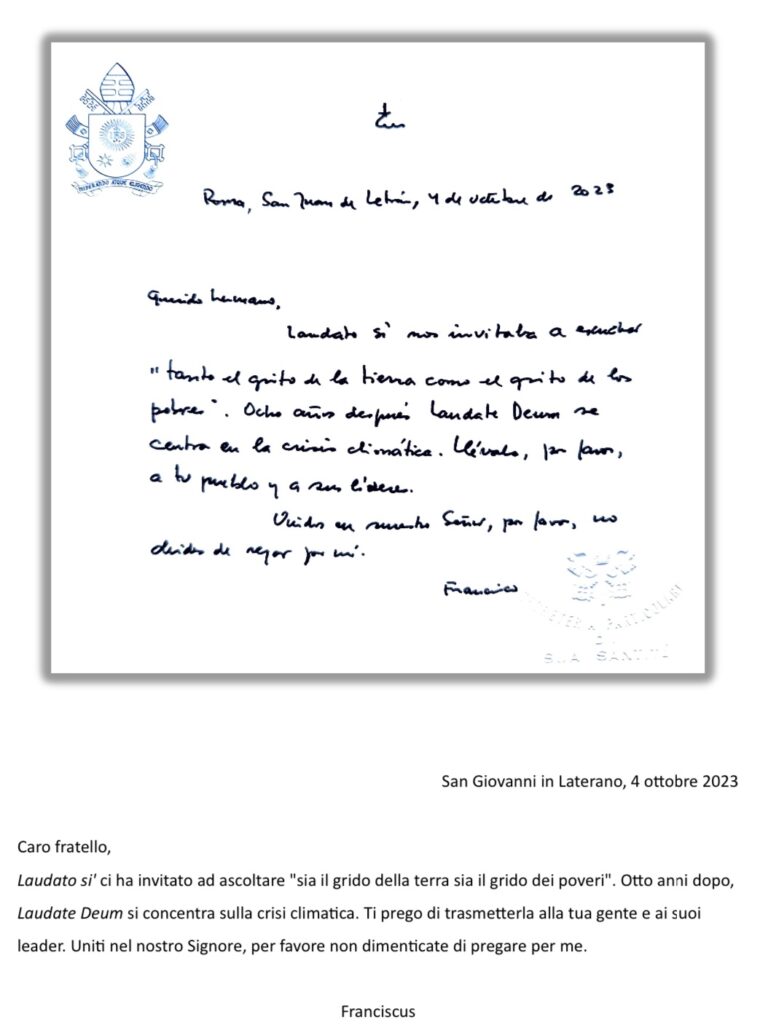 MISERANDO ATQUE ELIGENDO
Roma, San Juan de Letrán, 4 de octubre de 2023
Querido hermano,
Laudato si' nos invitaba a escuchar
"tanto el grito de la tierra como el grito de los
pobres". Ocho años después Laudate Deum se
centra en la crisis climática. Llévala, por favor,
a tu pueblo y a sus líderes.
Unidos en nuestro Señor, por favor, no
olvides de rezar por mí.
Francisco
SEGRETERIA PARTICOLARE
DI
SUA SANTITÀ
San Giovanni in Laterano, 4 ottobre 2023
Caro fratello,
Laudato si' ci ha invitato ad ascoltare "sia il grido della terra sia il grido dei poveri". Otto anni dopo,
Laudate Deum si concentra sulla crisi climatica. Ti prego di trasmetterla alla tua gente e ai suoi
leader. Uniti nel nostro Signore, per favore non dimenticate di pregare per me.
Franciscus